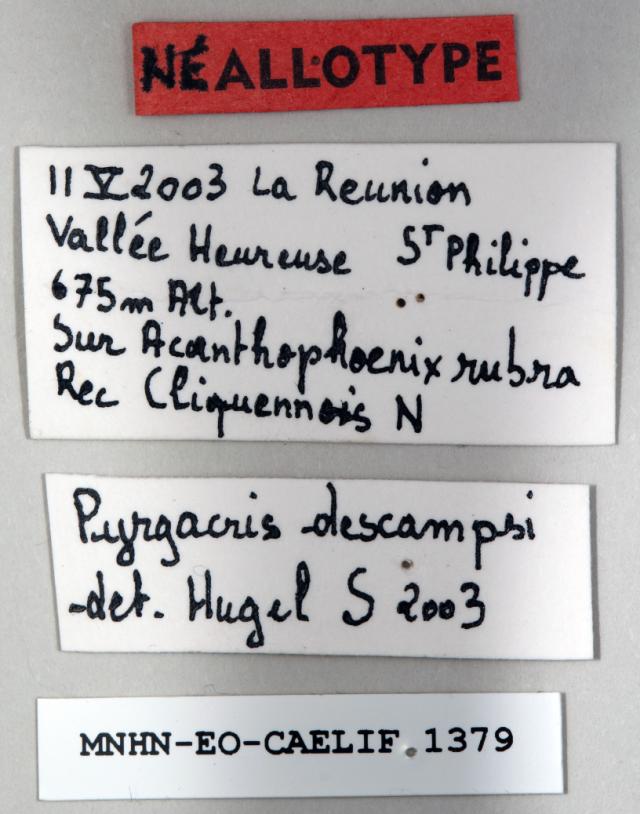 NÉALLOTYPE
11 V 2003 La Reunion
Vallée Heureuse St Philippe
675m Alt.
Sur Acanthophoenix rubra
Rec Cliquennois N
Pyrgacris descampsi
det. Hugel S 2003
MNHN-EO-CAELIF 1379